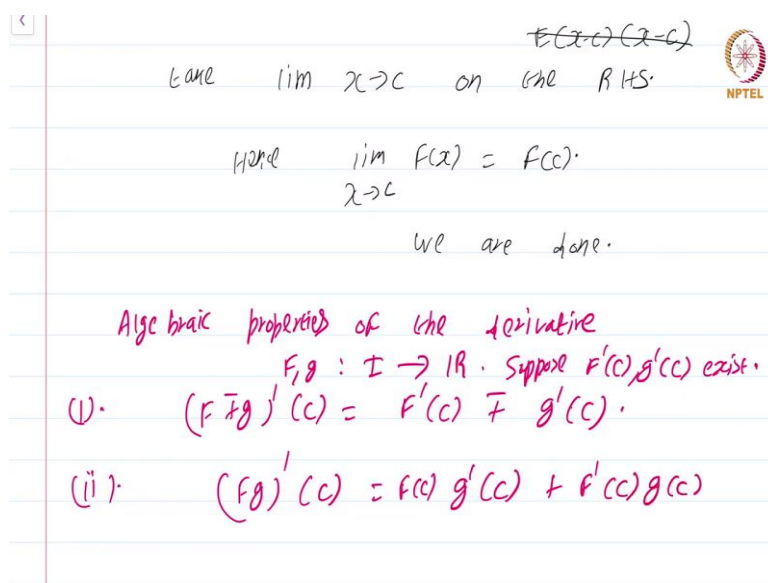 E(x-c)(x-c)
take lim x→c on the RHS.
NPTEL
Hence lim F(x) = F(c).
x→c
we are done.
Algebraic properties of the derivative
F, g : I → IR. Suppose F'(c), g'(c) exist.
(i). (F ∓ g)'(c) = F'(c) ∓ g'(c).
(ii). (Fg)'(c) = F(c) g'(c) + F'(c) g(c)